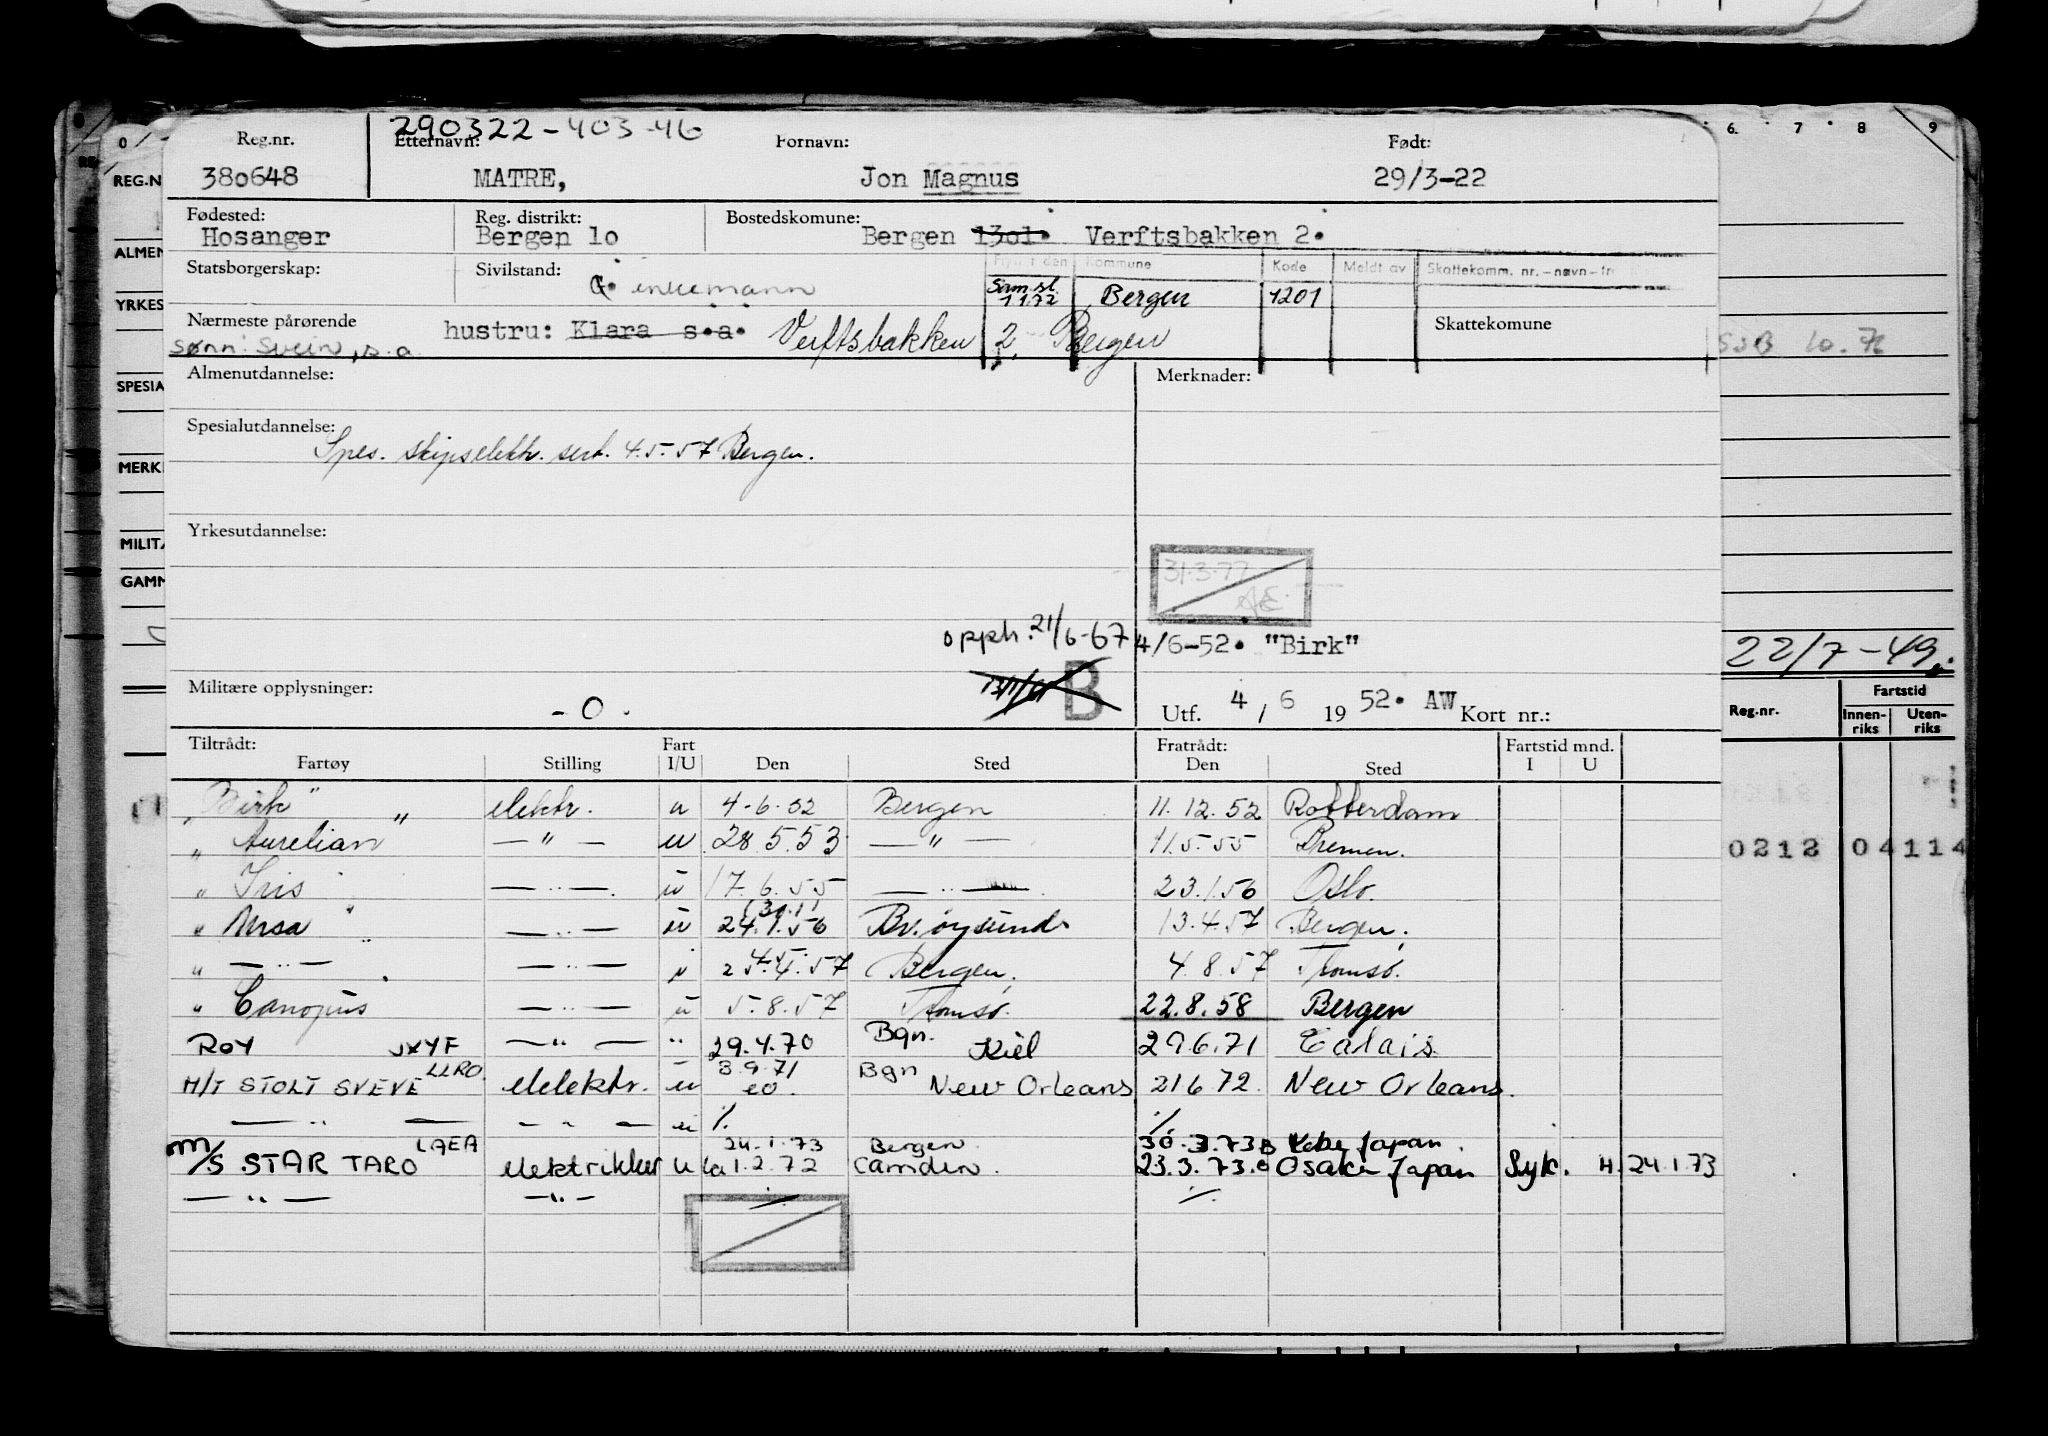 290322-403-46
Reg.nr. Etternavn: Fornavn: Født:
380648 MATRE, Jon Magnus 29/3-22
Fødested: Reg. distrikt: Bostedskomune:
Hosanger Bergen 1o Bergen 13o1. Verftsbakken 2.
Statsborgerskap: Sivilstand: Flyttet den Kommune Kode Meldt av Skattekomm. nr.-navn-fr
G. enkemann Sam.sl. 1.1.72 Bergen 1201
Nærmeste pårørende hustru: Klara s.a. Verftsbakken 2, Bergen Skattekomune
sønn: Svein, s.a.
Almenutdannelse: Merknader:
Spesialutdannelse:
Spes. skipselektr. sert. 4.5.57 Bergen.
Yrkesutdannelse:
31.3.77
AE
opph. 21/6-67 4/6-52. "Birk"
Militære opplysninger: - 0 - B Utf. 4 / 6 19 52. AW Kort nr.:
Tiltrådt: Fart Fratrådt: Fartstid mnd.
Fartøy Stilling I/U Den Sted Den Sted I U
"Birk" elektr. u 4-6-52 Bergen 11.12.52 Rotterdam
" Aurelian " — " — u 28.5.53 — " — 11.5.55 Bremen.
" Iris " — " — u 17.6.55 — " — 23.1.56 Oslo.
" Ursa " — " — u (30.1) 24.1.56 Br.øysund 13.4.57 Bergen.
" — " — — " — i 25.4.57 Bergen. 4.8.57 Tromsø.
" Canopus — " — u 5.8.57 Tromsø. 22.8.58 Bergen
ROY JXYF — " — " 29.4.70 Bgn. Kiel 29.6.71 Calais
M/T STOLT SVEVE LLRO elektr. u 3.9.71 eo. Bgn New Orleans 21672. New Orleans.
— " — — " — u ./. ./.
M/S STAR TARO LAEA elektrikker u 24.1.73 1.2.72 Bergen. Camden. 30.3.73 Kobe Japan 23.3.73. Osaka Japan Syk. H. 24.1.73
— " — — " — ./. ./.
0 6. 7 8 9
REG.N
ALMEN
YRKES
SPESIA
MERK
MILITÆ
GAMM
SJB 10.76
22/7-49.
Fartstid
Reg.nr. Innen-riks Uten-riks
0212 04114